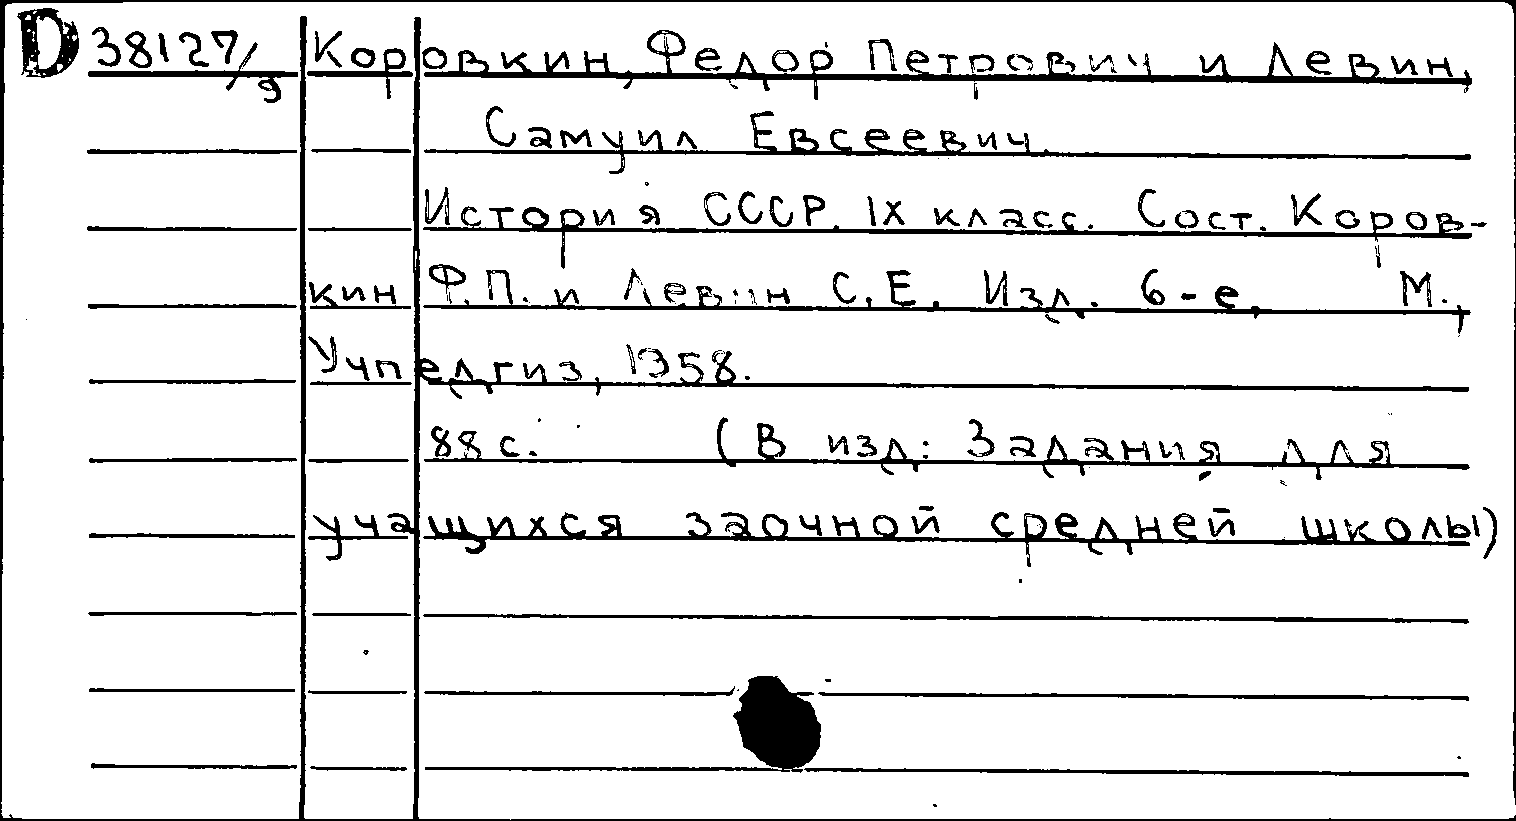 D 38127/9 Коровкин, Федор Петрович и Левин,
Самуил Евсеевич.
История СССР. IX класс. Сост. Коров-
кин Ф.П. и Левин С.Е. Изд. 6-е, М.,
Учпедгиз, 1958.
88 с. (В изд: Задания для
учащихся заочной средней школы)